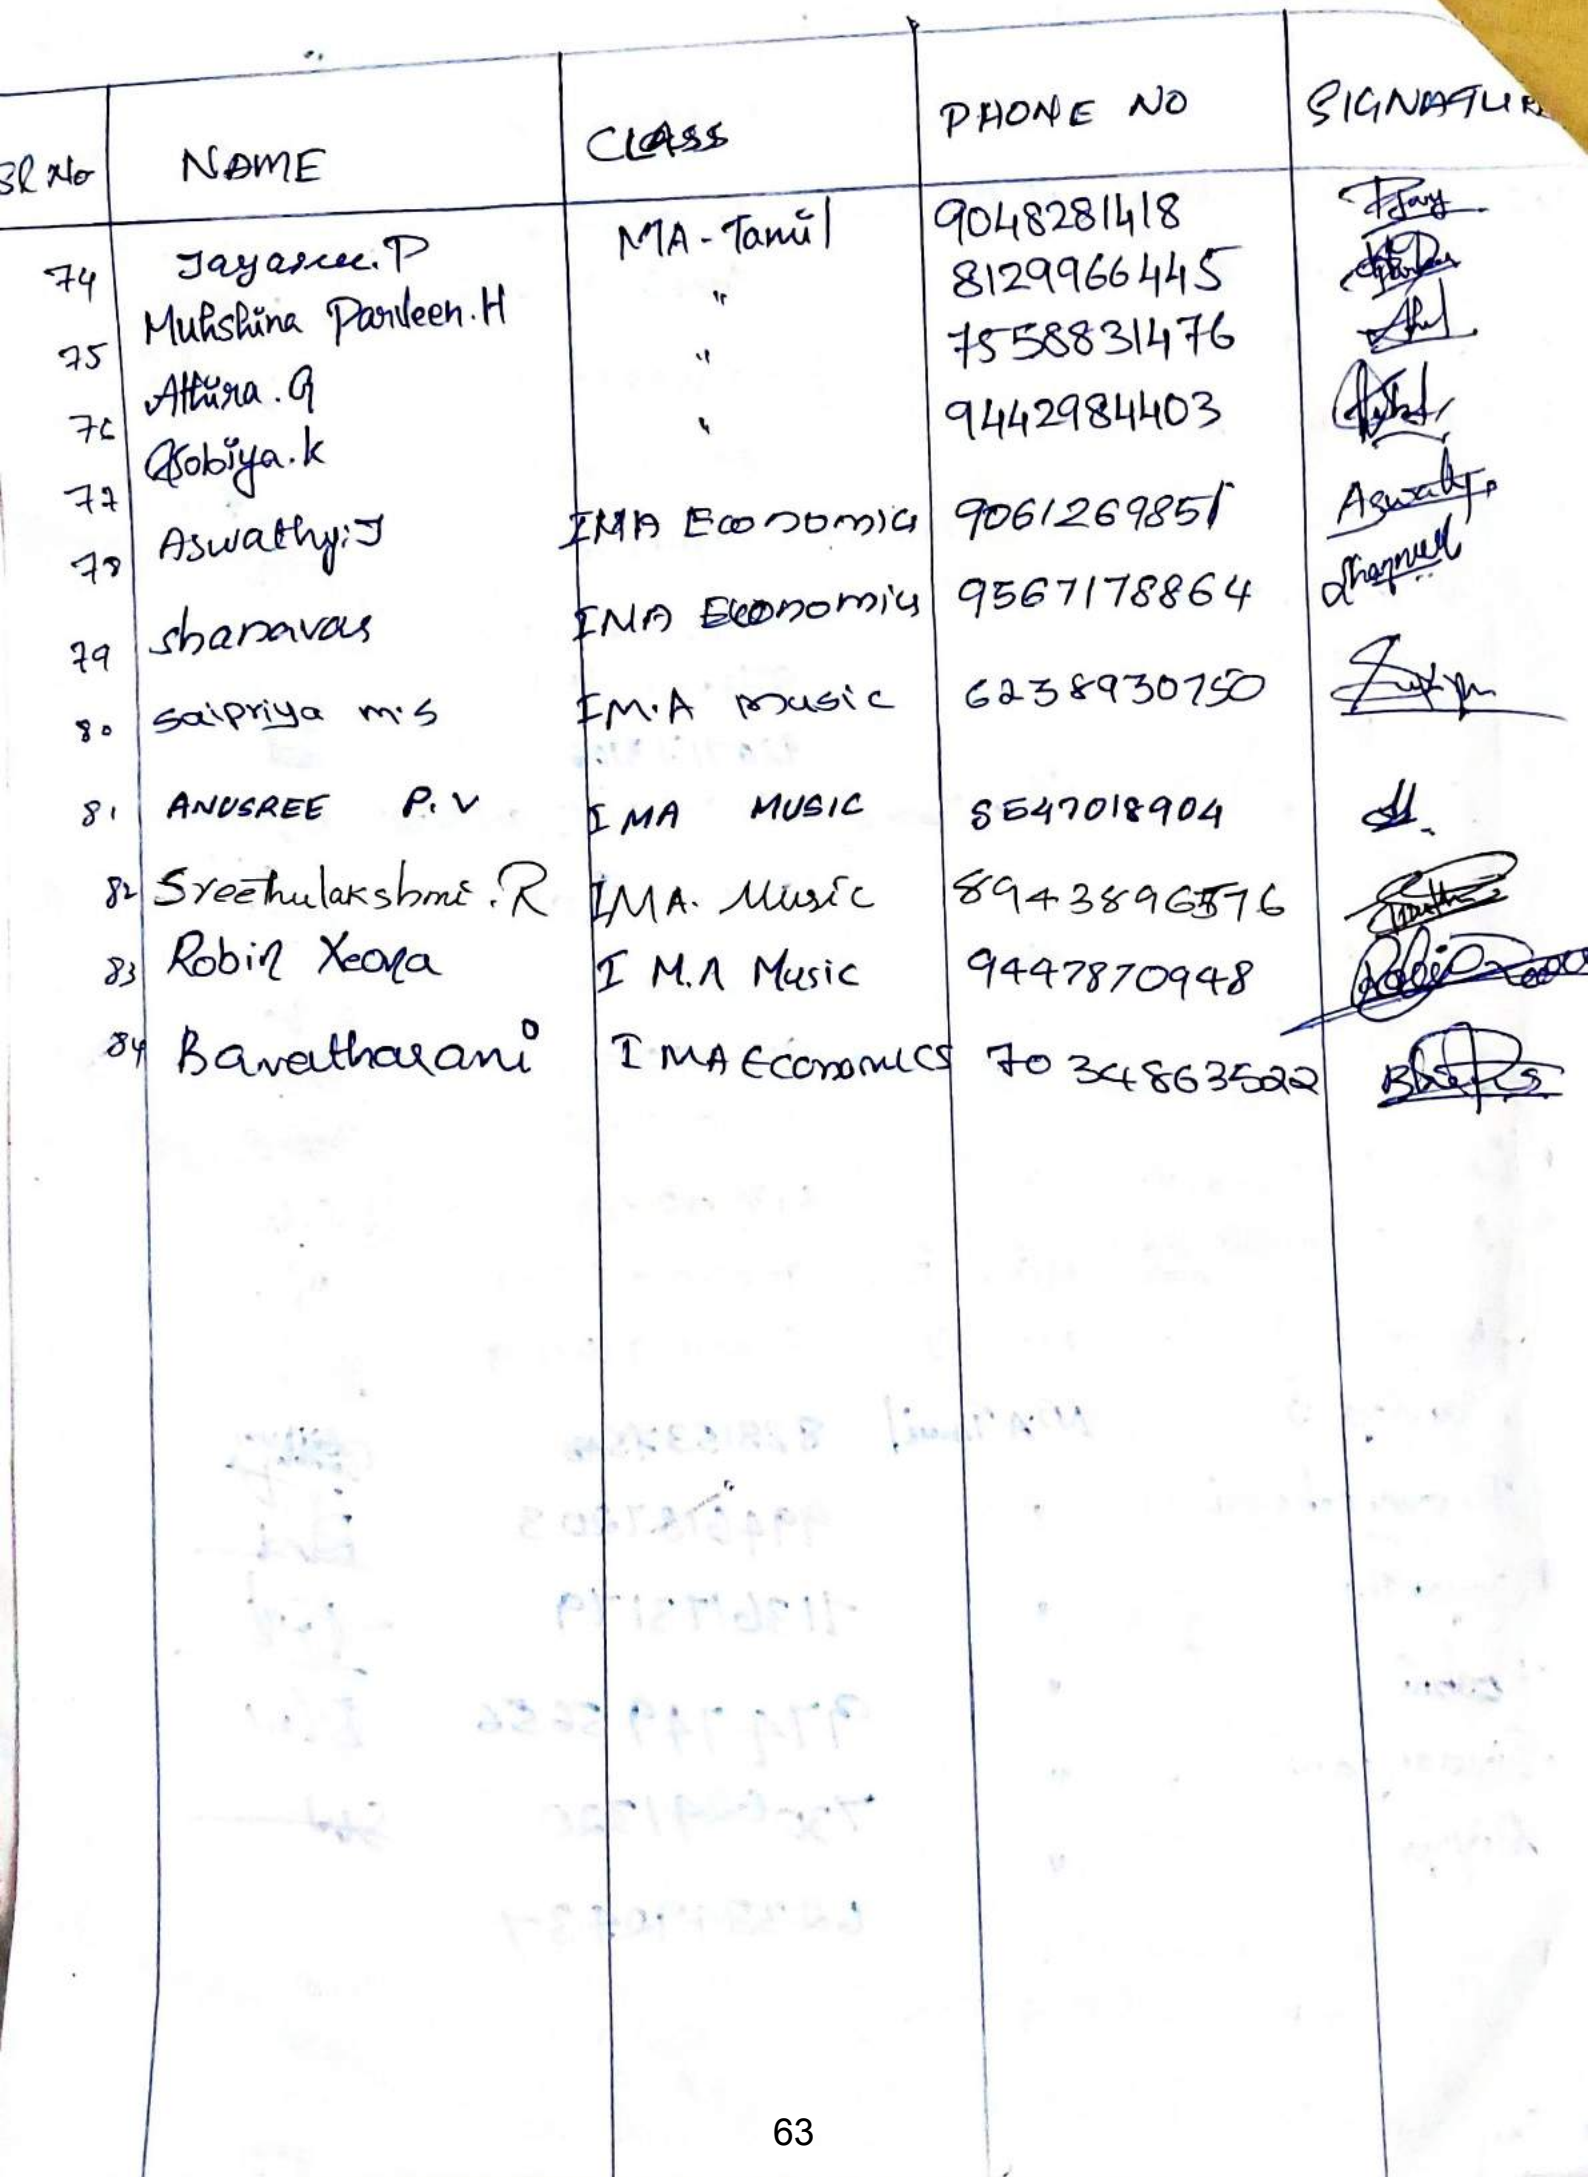 Sl No NAME CLASS PHONE NO SIGNATUR
74 Jayasree.P MA-Tamil 9048281418
75 Muhshina Parveen.H " 8129966445
76 Athira.G " 7558831476
77 Gobiya.k " 9442984403
78 Aswathy.J IMA Economics 9061269851 Aswathy
79 shanavas IMA Economics 9567178864
80 saipriya m.s IM.A music 6238930750
81 ANUSREE P.V IMA MUSIC 8547018904
82 Sreethulakshmi.R IMA. Music 8943896576
83 Robin Xeona I M.A Music 9447870948
84 Baratharani I MA Economics 7034863522
63